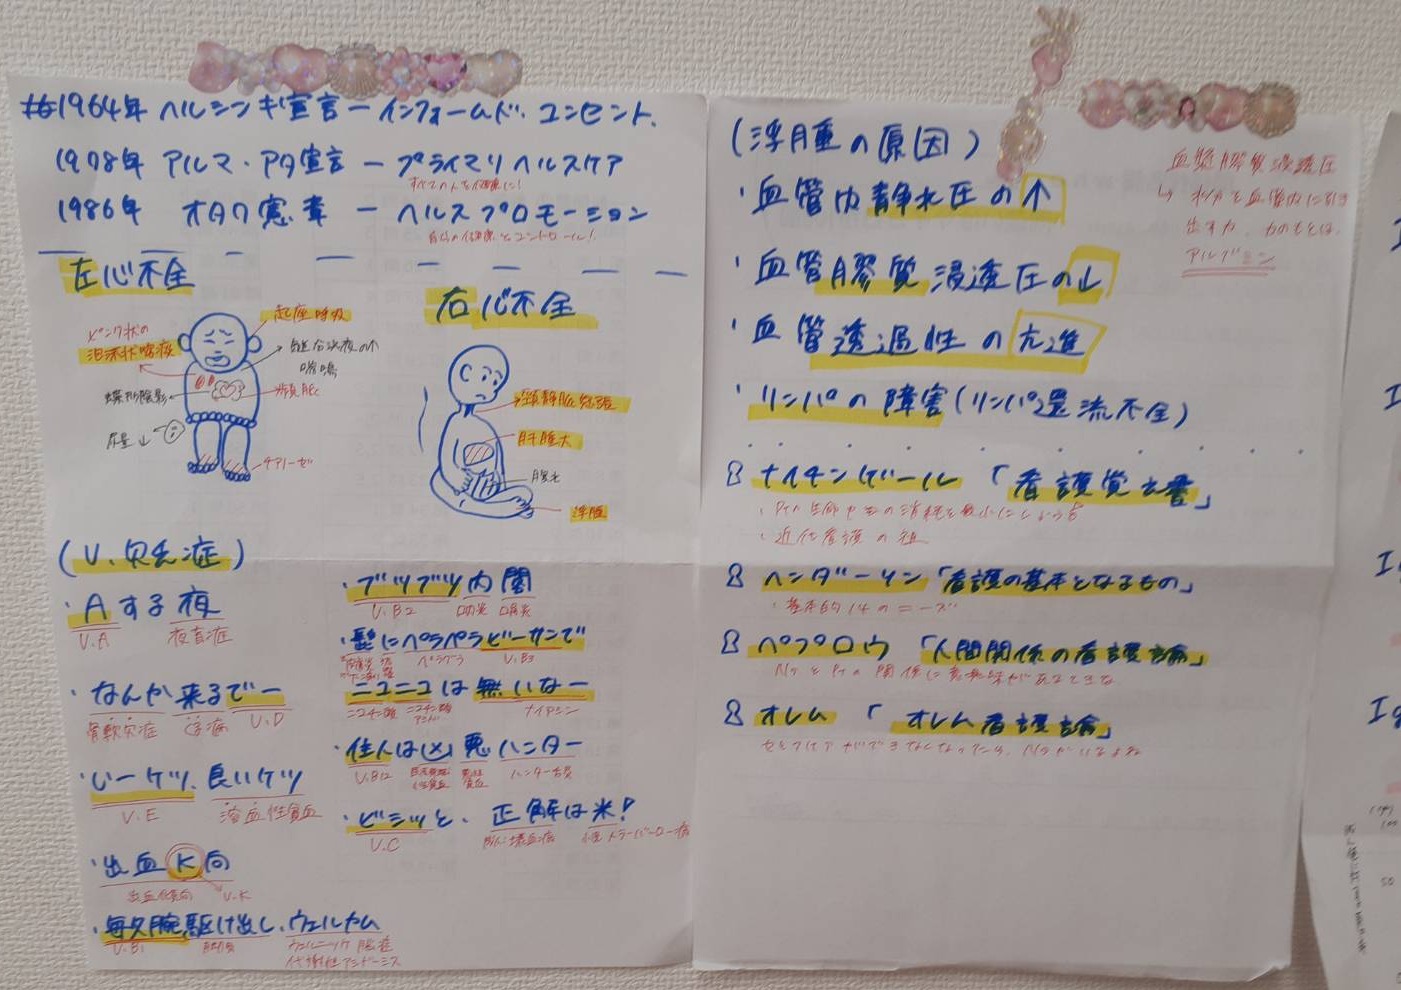 1964年 ヘルシンキ宣言 ー インフォームド・コンセント
1978年 アルマ・アタ宣言 ー プライマリヘルスケア
すべての人を健康に!
1986年 オタワ憲章 ー ヘルスプロモーション
自らの健康をコントロール!
左心不全
ピンク状の
泡沫状喀痰
起座呼吸
喘鳴
蝶形陰影
頻脈
尿量↓
チアノーゼ
右心不全
頸静脈怒張
肝腫大
腹水
浮腫
(V.欠乏症)
・Aする夜
V.A 夜盲症
・なんか来るでー
骨軟化症 くる病 V.D
・いーケツ、良いケツ
V.E 溶血性貧血
・出血K向
出血傾向 V.K
・毎久腕駆け出し、ウェルカム
V.B1 脚気 ウェルニッケ脳症
代謝性アシドーシス
・ブツブツ内閣
V.B2 口内炎 口角炎
・髭にペラペラビーサンで
ペラグラ V.B3
ニコニコは無いなー
ナイアシン
・住人は凶悪ハンター
V.B12 ハンター舌炎
・ビシッと、正解は米!
V.C 壊血病
(浮腫の原因)
・血管内静水圧の↑
・血管膠質浸透圧の↓
・血管透過性の亢進
・リンパの障害(リンパ還流不全)
血漿膠質浸透圧
↳ 水分を血管内に引き
出す力、力のもとは、
アルブミン
ナイチンゲール「看護覚え書」
・Ptの生命力の消耗を最小にしよう
・近代看護の祖
ヘンダーソン「看護の基本となるもの」
・基本的14のニーズ
ペプロウ「人間関係の看護論」
NsとPtの関係に意味がある
オレム「オレム看護論」
セルフケアができなくなったら、Nsがいるよね
100
50